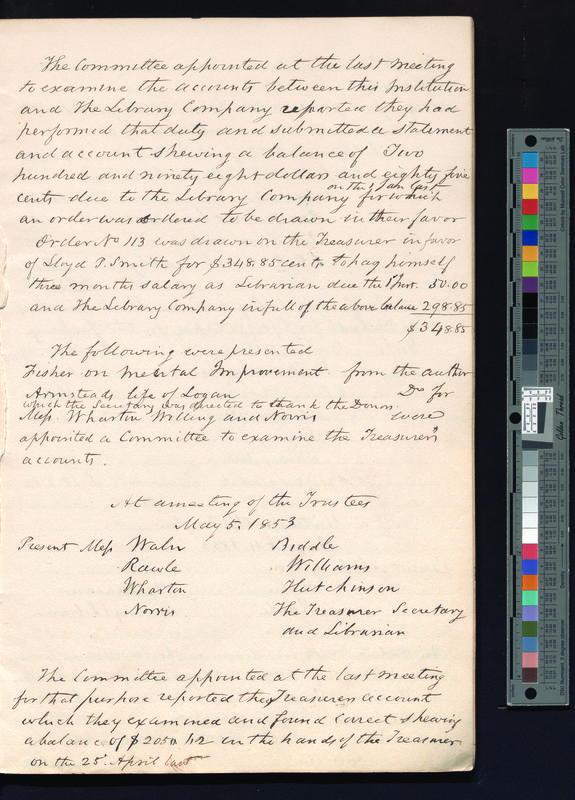 The Committee appointed at the last meeting
to examine the accounts between this Institution
and The Library Company reported they had
performed that duty and submitted a statement
and account shewing a balance of Two
hundred and ninety eight dollars and eighty five
on the 1 Jan last
cents due to the Library Company for which
an order was ordered to be drawn in their favor
Order No 113 was drawn on the Treasurer in favor
of Lloyd P. Smith for $348.85 cents to pay himself
three months salary as Librarian due the 1st inst. 50.00
and The Library Company in full of the above balance 298.85
$348.85
The following were presented
Fisher on Mental Improvement from the author
Armsteads life of Logan Do for
which the Secretary was directed to thank the Donors
Mess. Wharton Willing and Norris were
appointed a Committee to examine the Treasurer's
accounts.
At a meeting of the Trustees
May 5. 1853
Present Mess Waln Biddle
Rawle Williams
Wharton Hutchinson
Norris The Treasurer Secretary
and Librarian
The Committee appointed at the last meeting
for that purpose reported the Treasurers account
which they examined and found correct shewing
a balance of $ in the hands of the Treasurer
on the 25 April last